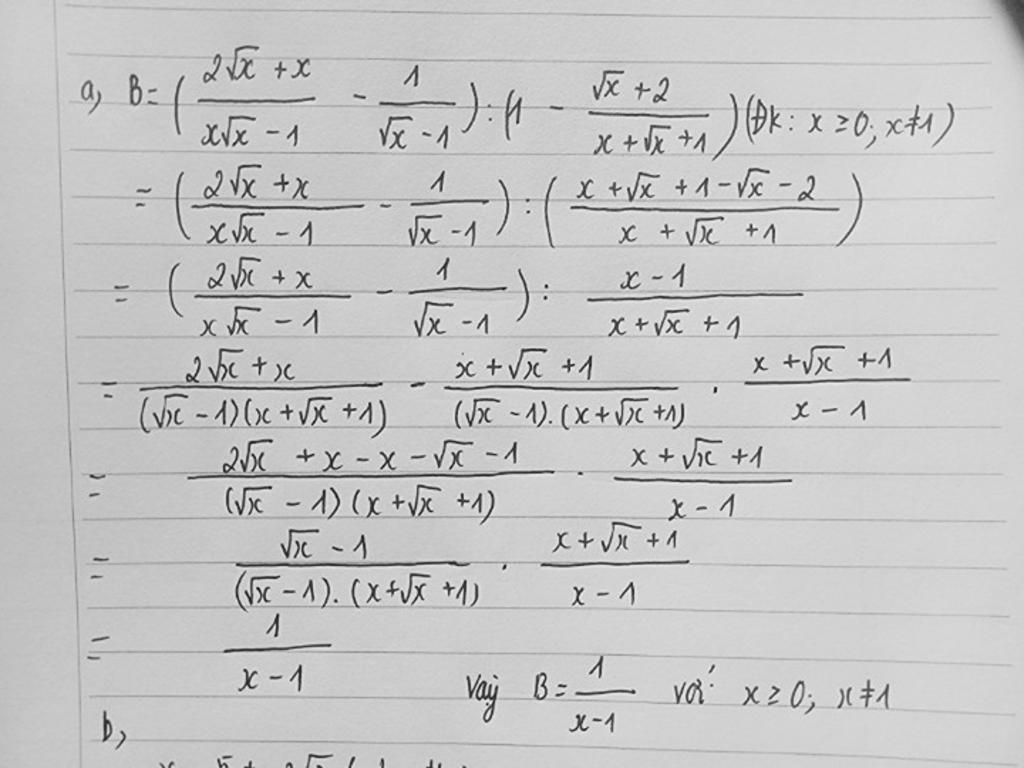 a, B = ( (2√x + x)/(x√x - 1) - 1/(√x - 1) ) : (1 - (√x + 2)/(x + √x + 1) ) (Đk: x ≥ 0; x ≠ 1)
= ( (2√x + x)/(x√x - 1) - 1/(√x - 1) ) : ( (x + √x + 1 - √x - 2)/(x + √x + 1) )
= ( (2√x + x)/(x√x - 1) - 1/(√x - 1) ) : (x - 1)/(x + √x + 1)
= (2√x + x)/((√x - 1)(x + √x + 1)) - (x + √x + 1)/((√x - 1).(x + √x + 1)) . (x + √x + 1)/(x - 1)
= (2√x + x - x - √x - 1)/((√x - 1)(x + √x + 1)) . (x + √x + 1)/(x - 1)
= (√x - 1)/((√x - 1).(x + √x + 1)) . (x + √x + 1)/(x - 1)
= 1/(x - 1)
Vậy B = 1/(x - 1) với x ≥ 0; x ≠ 1
b,